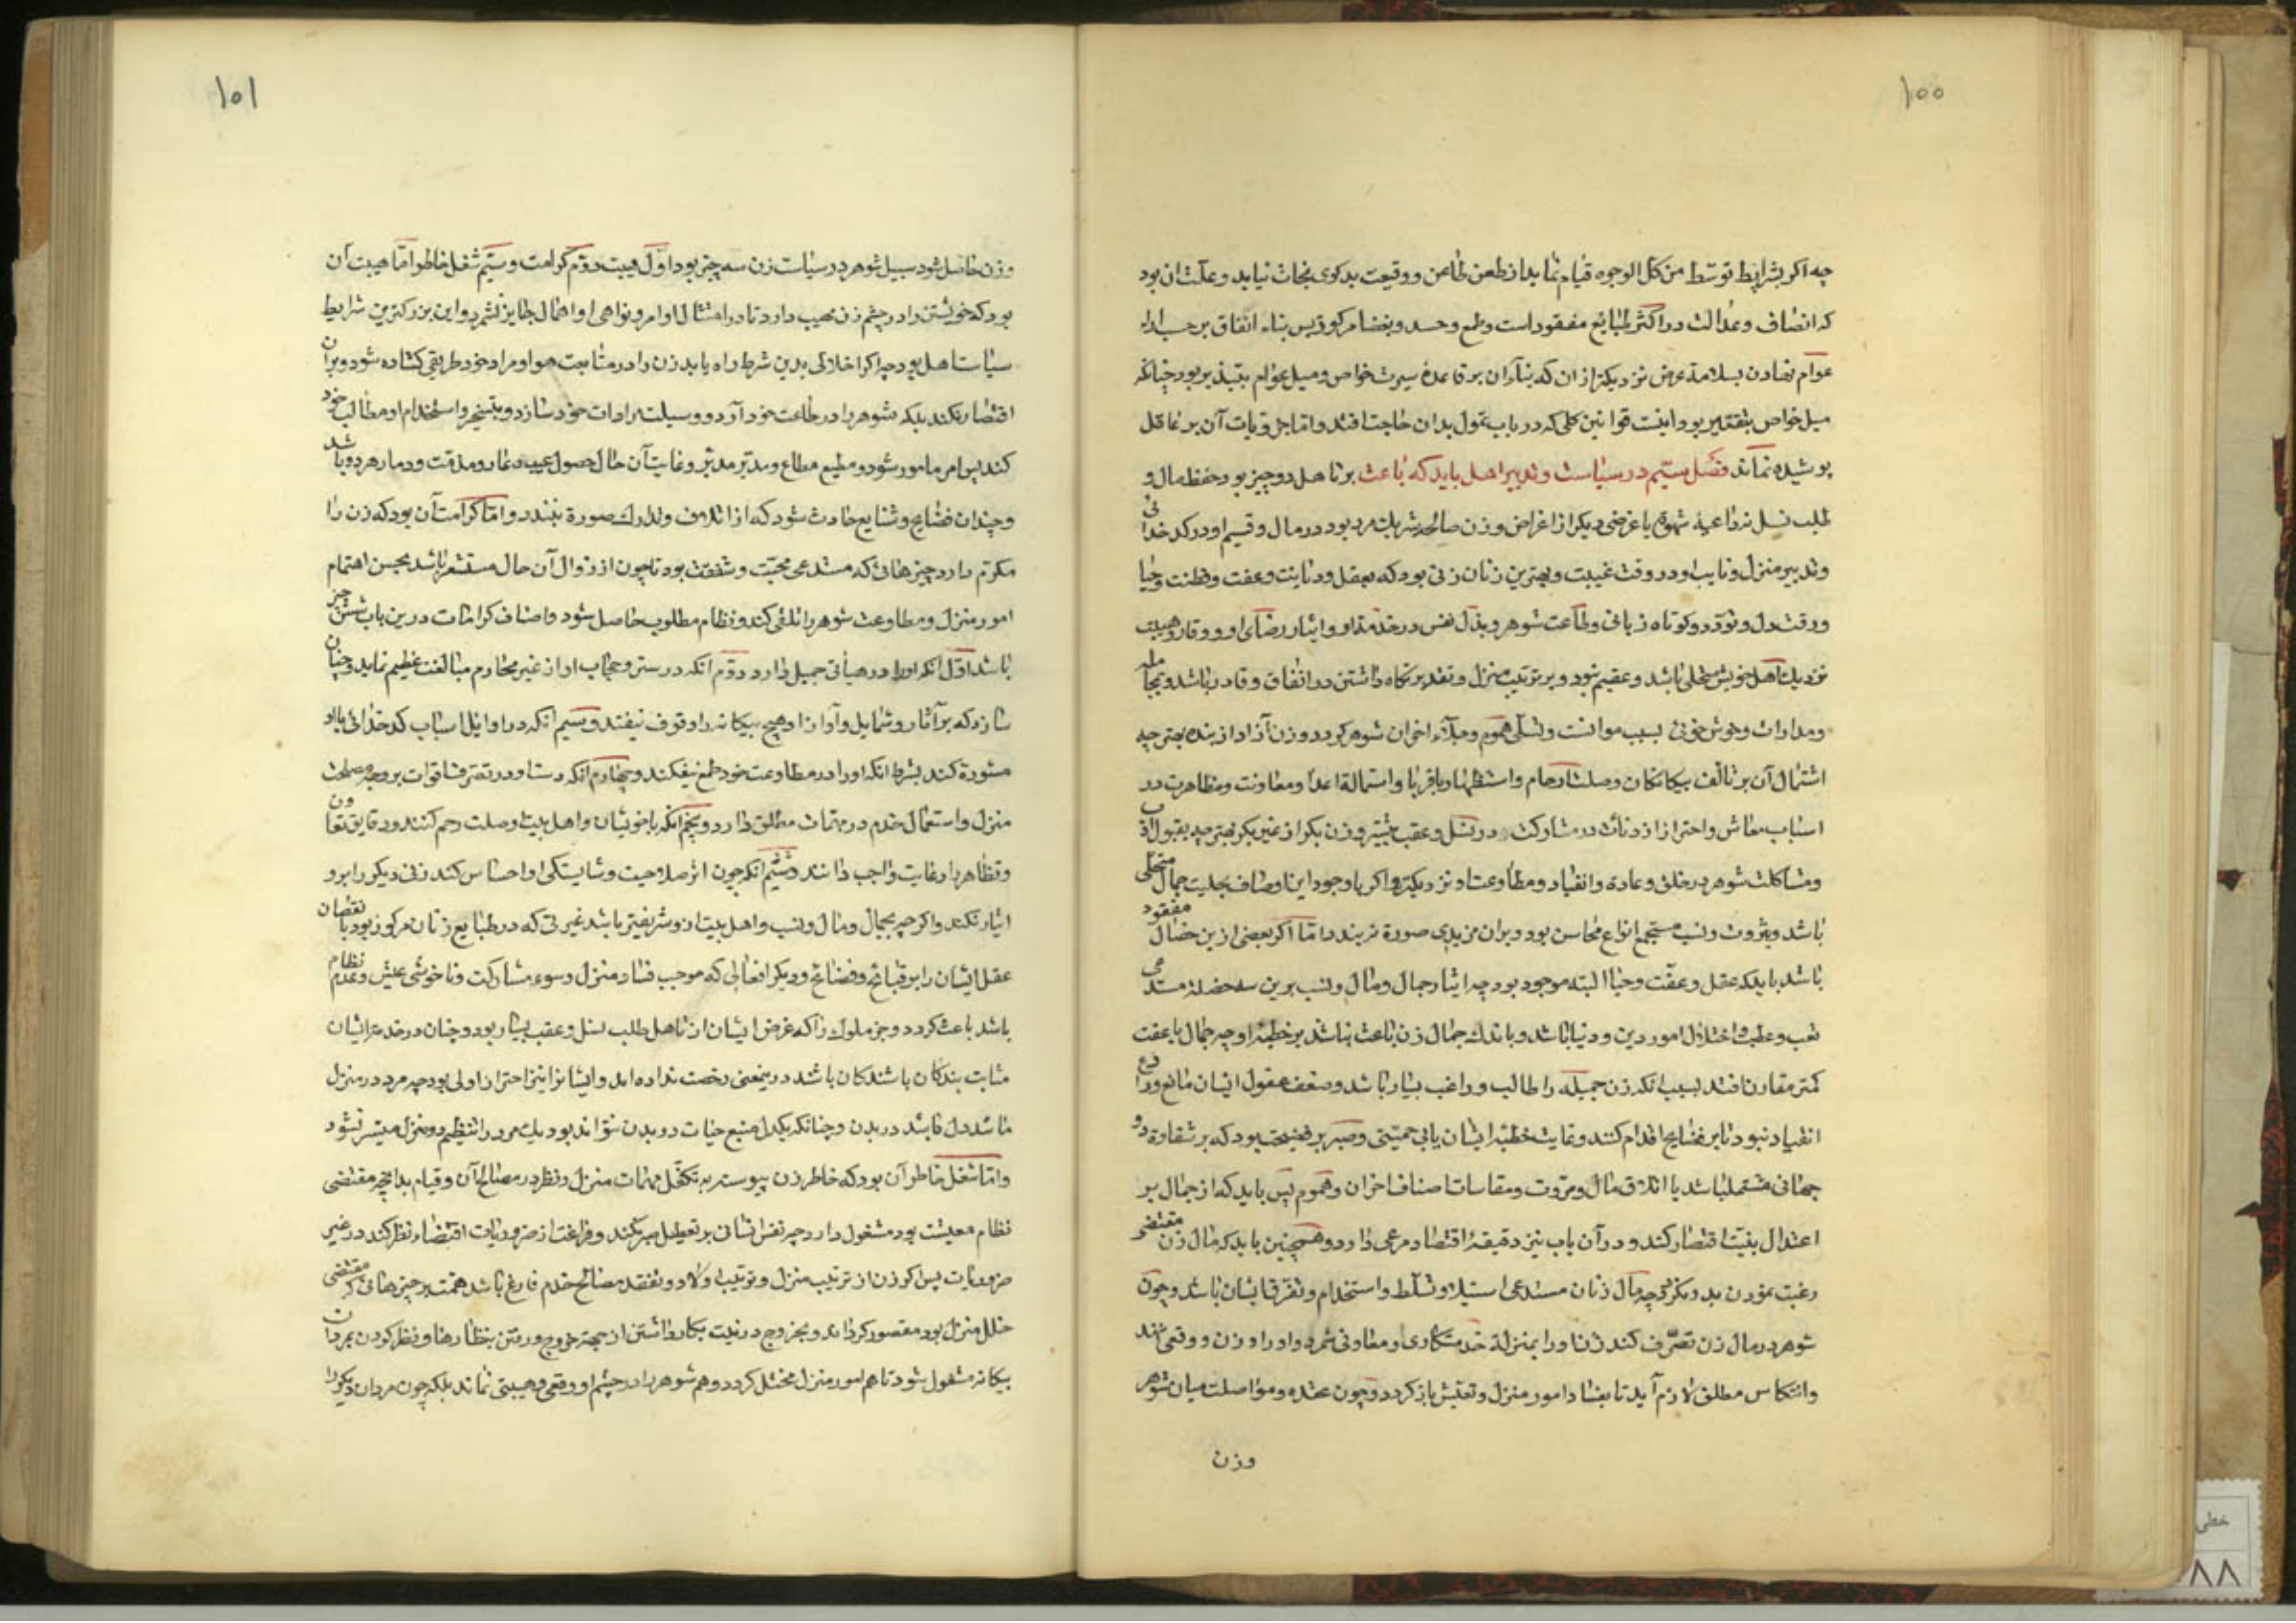 ۱۰۰
چه اکر بشرایط توسّط من کل الوجوه قیام نماید از طعن طاعن و وقیعت بدکوی نجات نیابد و علّت ان بود
که انصاف و عدالت در اکثر طبایع مفقود است و طمع و حسد و بغضا مرکوز پس بناء انفاق بر حسب اراء
عوام نهادن بسلامة عرض نزدیکتر ازان که بناء ان بر قاعدهٔ سیرت خواص و میل عوام بتبذیر بود چنانکه
میل خواص بتقتیر بود اینست قوانین کلی که در باب تمول بدان حاجت افتد و اما جزویات آن بر عاقل
پوشیده نماند فصل سیّم در سیاست و تدبیر اهل باید که باعث بر تاهل دو چیز بود حفظ مال و
طلب نسل نه داعیهٔ شهوة یا غرضی دیکر از اغراض و زن صالحه شریک مرد بود در مال و قسیم او در کدخدائی
و تدبیر منزل و نایب او در وقت غیبت و بهترین زنان زنی بود که بعقل و دیانت و عفت و فطنت و حیا
و رقت دل و تودّد و کوتاه زبانی و طاعت شوهر و بذل نفس در خدمة او و ایثار رضای او و وقار و هیبت
نزدیک اهل خویش متحلی باشد و عقیم نبود و بر ترتیب منزل و تقدیر نکاه داشتن در انفاق و قادر باشد و بمجامله
و مدارات و خوش خوئی سبب موانست و تسلّی هموم و جلاء احزان شوهر کردد و زن آزاد از بنده بهتر چه
اشتمال آن بر تالف بیکانکان و صلت ارحام و استظهار باقربا و استمالة اعدا و معاونت و مظاهرت در
اسباب معاش و احتراز از دنائت در مشارکت و در نسل و عقب بیشتر و زن بکر از غیر بکر بهتر چه بقبول اداب
و مشاکلت شوهر در خلق و عادة و انقیاد و مطاوعت او نزدیکتر و اکر با وجود این اوصاف بحلیت جمال متحلی
باشد و بثروت و نسب مستجمع انواع محاسن بود و بران مزیدی صورة نبندد اما اکر بعضی ازین خصال مفقود
باشد باید که عقل و عفّت و حیا البته موجود بود چه ایثار جمال و مال و نسب برین سه خصلة مستدعی
تعب و عطب و اختلال امور دین و دنیا باشد و باید که جمال زن باعث نباشد بر خطبهٔ او چه جمال با عفت
کمتر مقارن افتد بسبب انکه زن جمیله را طالب و راغب بسیار باشد و ضعف عقول ایشان مانع و رادع
انقیاد نبود تا بر فضایح اقدام کنند و غایت خطبهٔ ایشان یا بی حمیّتی و صبر بر فضیحت بود که بر شقاوة دو
جهانی مشتمل باشد یا اتلاف مال و مروّت و مقاسات اصناف احزان و هموم پس باید که از جمال بر
اعتدال بنیت اقتصار کند و در آن باب نیز دقیقهٔ اقتصاد مرعی دارد و همچنین باید که مال زن مقتضی
رغبت نمودن بدو نکردد چه مال زنان مستدعی استیلا و تسلّط و استخدام و تفوق ایشان باشد و چون
شوهر در مال زن تصرّف کند زن او را بمنزلة خدمتکاری و معاونی شمرد و او را وزن و وقعی ننهد
و انتکاس مطلق لازم آید تا بفساد امور منزل و تعیّش باز کردد و چون عقده و مواصلت میان شوهر
وزن
۱۰۱
و زن حاصل شود سبیل شوهر در سیاست زن سه چیز بود اوّل هیبت دوّم کرامت و سیّم شغل خاطر امّا هیبت آن
بود که خویشتن را در چشم زن مهیب دارد تا در امتثال اوامر و نواهی او اهمال جایز نشمرد و این بزرکترین شرایط
سیاست اهل بود چه اکر اخلالی بدین شرط راه یابد زن را در متابعت هوا و مراد خود طریقی کشاده شود و بران
اقتصار نکند بلکه شوهر را در طاعت خود آورد و وسیلت مرادات خود سازد و بتسخیر و استخدام او مطالب خود
کند پس امر مامور شود و مطیع مطاع و مدبّر مدبَّر و غایت آن حال حصول عیب و عار و مذمّت و دمار هر دو باشد
و چندان فضایح و شنایع حادث شود که از اتلاف و تدارک صورة نبندد و امّا کرامت آن بود که زن را
مکرّم دارد چیزهائی که مستدعی محبّت و شفقت بود تا چون از زوال آن حال مستشعر باشد بحسن اهتمام
امور منزل و مطاوعت شوهر را تلقی کند و نظام مطلوب حاصل شود و اصناف کرامات درین باب شش چیز
باشد اوّل انکه او را در هیاتی جمیل دارد دوّم انکه در ستر و حجاب او از غیر محارم مبالغت عظیم نماید و چنان
سازد که بر آثار و شمایل و آواز او هیچ بیکانه را وقوف نیفتد و سیم انکه در اوایل اسباب کدخدائی با او
مشورة کند بشرط انکه او را در مطاوعت خود طمع نیفکند و چهارم انکه دست او در تصرف اقوات بر وجه مصلحت
منزل و استعمال خدم در مهمات مطلق دارد و پنجم انکه با خویشان و اهل بیت او صلت رحم کنند و دقایق تعاون
و تظاهر را رعایت واجب دانند و ششم انکه چون اثر صلاحیت و شایستکی او احساس کند زنی دیکر را بر او
ایثار نکند و اکر چه بجمال و مال و نسب و اهل بیت از و شریفتر باشد غیرتی که در طبایع زنان مرکوز بود با نقصان
عقل ایشان را بر قبایح و فضائح و دیکر افعالی که موجب فساد منزل و سوء مشارکت و ناخوشی عیش و عدم نظام
باشد باعث کردد و جز ملوک را که غرض ایشان از تاهل طلب نسل و عقب بسیار بود و زنان در خدمة ایشان
مثابت بندکان باشند کان باشند درینمعنی رخصت نداده اند و ایشانرا نیز احتراز اولی بود چه مرد در منزل
مانند دل باشد در بدن و چنانکه یکدل منبع حیات دو بدن نتواند بود یک مرد را تنظیم دو منزل میسر نشود
و امّا شغل خاطر آن بود که خاطر زن پیوسته به تکفّل مهمات منزل و نظر در مصالح آن و قیام بدانچه مقتضی
نظام معیشت بود مشغول دارد چه نفس انسانی بر تعطیل صبر نکند و فراغت از ضروریات اقتضاء نظر کند در غیر
ضروریات پس اکر زن از ترتیب منزل و ترتیب اولاد و تفقد مصالح خدم فارغ باشد همّت بر چیزهائی که مقتضی
خلل منزل بود مقصور کرداند و بخروج و زینت بکار داشتن از جهة خروج و رفتن بنظارها و نظر کردن بمردان
بیکانه مشغول شود تا هم امور منزل مختل کردد و هم شوهر را در چشم او وقعی و هیبتی نماند بلکه چون مردان دیکر را
خطی
۸۸